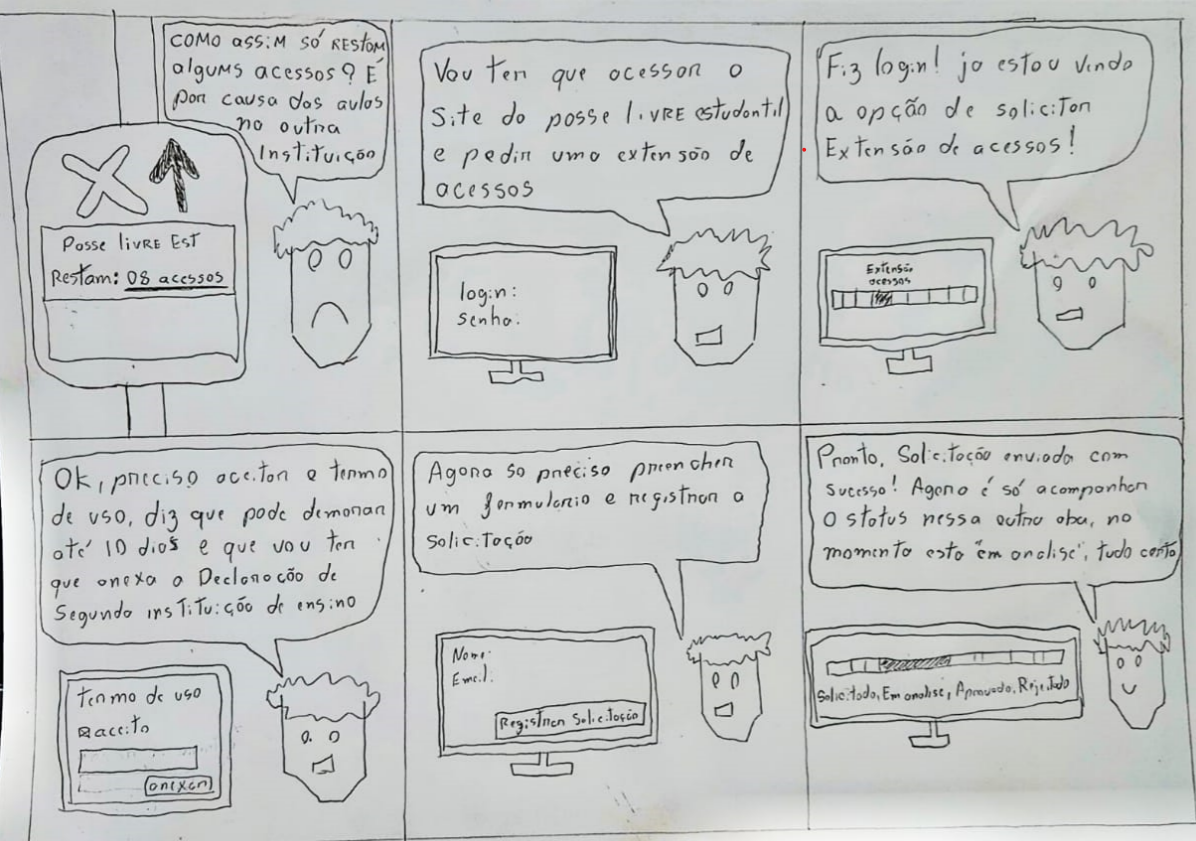 COMO assim SÓ RESTAM
alguns acessos? É
por causa das aulas
na outra
Instituição
Passe livRE EST
Restam: 08 acessos
Vou ter que acessar o
Site do passe livRE estudantil
e pedir uma extensão de
acessos
login:
Senha:
Fiz login! ja estou vendo
a opção de solicitar
Extensão de acessos!
Extensão
acessos
Ok, preciso aceitar o termo
de uso, diz que pode demorar
até 10 dias e que vou ter
que anexa a Declaração de
Segunda instituição de ensino
termo de uso
aceito
anexar
Agora so preciso preencher
um formulario e registrar a
Solicitação
Nome:
Email:
Registrar Solicitação
Pronto, Solicitação enviada com
sucesso! Agora é só acompanhar
O status nessa outra aba, no
momento esta "em analise", tudo certo
Solicitado, Em analise, Aprovado, Rejeitado